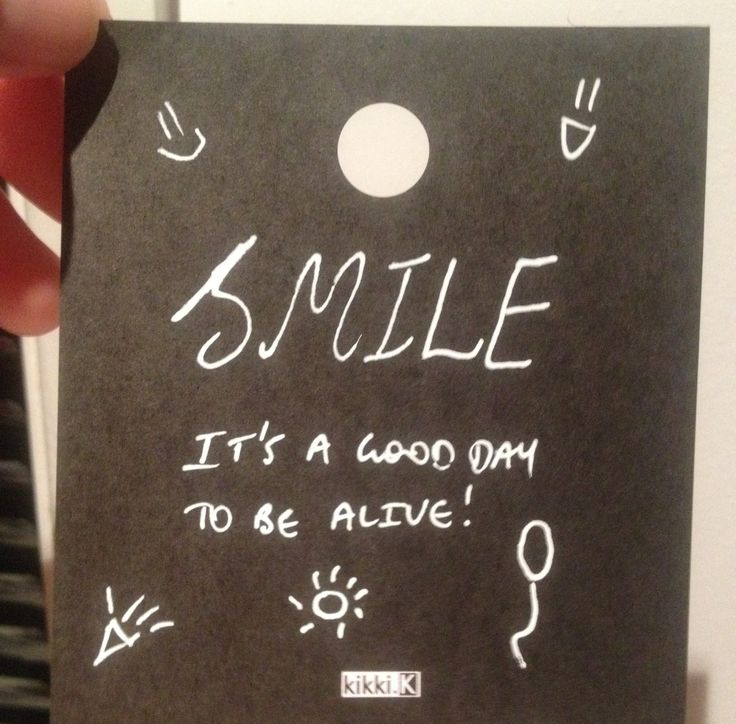 SMILE
IT'S A GOOD DAY
TO BE ALIVE!
kikki.K